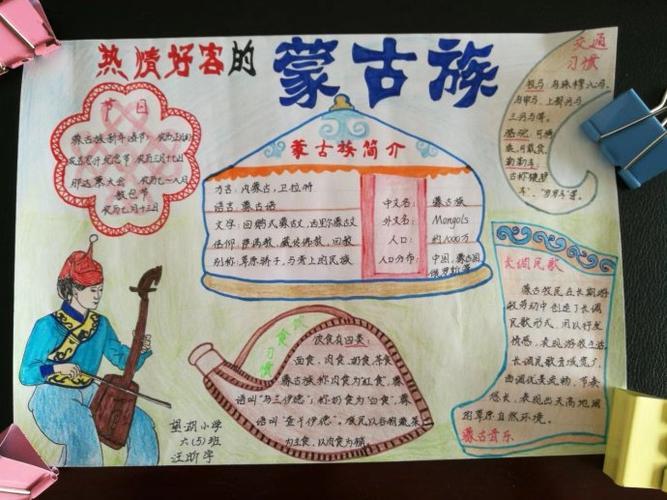 热情好客的
蒙古族
节日
蒙古族新年春节 农历正月初一
农历三月廿一
那达慕大会 农历七~八月
敖包节
农历七月十三日
蒙古族简介
方言:内蒙古,卫拉特
语言:蒙古语
文字:回鹘式蒙古文,西里尔蒙古文
信仰:萨满教,藏传佛教,回教
别称:草原骄子,马背上的民族
中文名: 蒙古族
外文名: Mongols
人口: 约1000万
人口分布: 中国,蒙古国
俄罗斯等
交通
习惯
役马:
勒勒车
长调民歌
蒙古牧民在长期游
牧劳动中创造了长调
民歌形式,用以抒发
情感,表现游牧生活
长调民歌音域宽广,
曲调优美流畅,节奏
悠长,表现出天高地阔
的草原自然环境。
蒙古音乐
饮食
习惯
饮食有四类:
面食,肉食,奶食,茶食
蒙古族称肉食为"红食",蒙
语叫"乌兰伊德";称奶食为"白食",蒙
语叫"查干伊德"。
为主食,以肉食为辅
望湖小学
六(5)班
汪昕宇